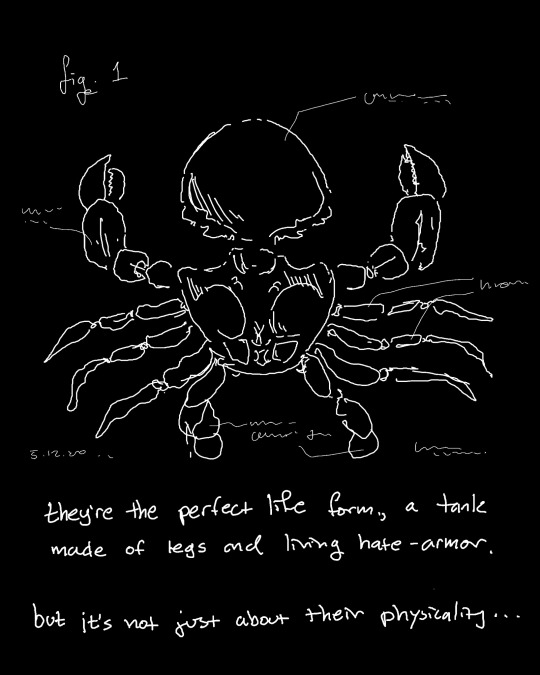 fig. 1
5.12.20
they're the perfect life form, a tank
made of legs and living hate-armor.
but it's not just about their physicality...